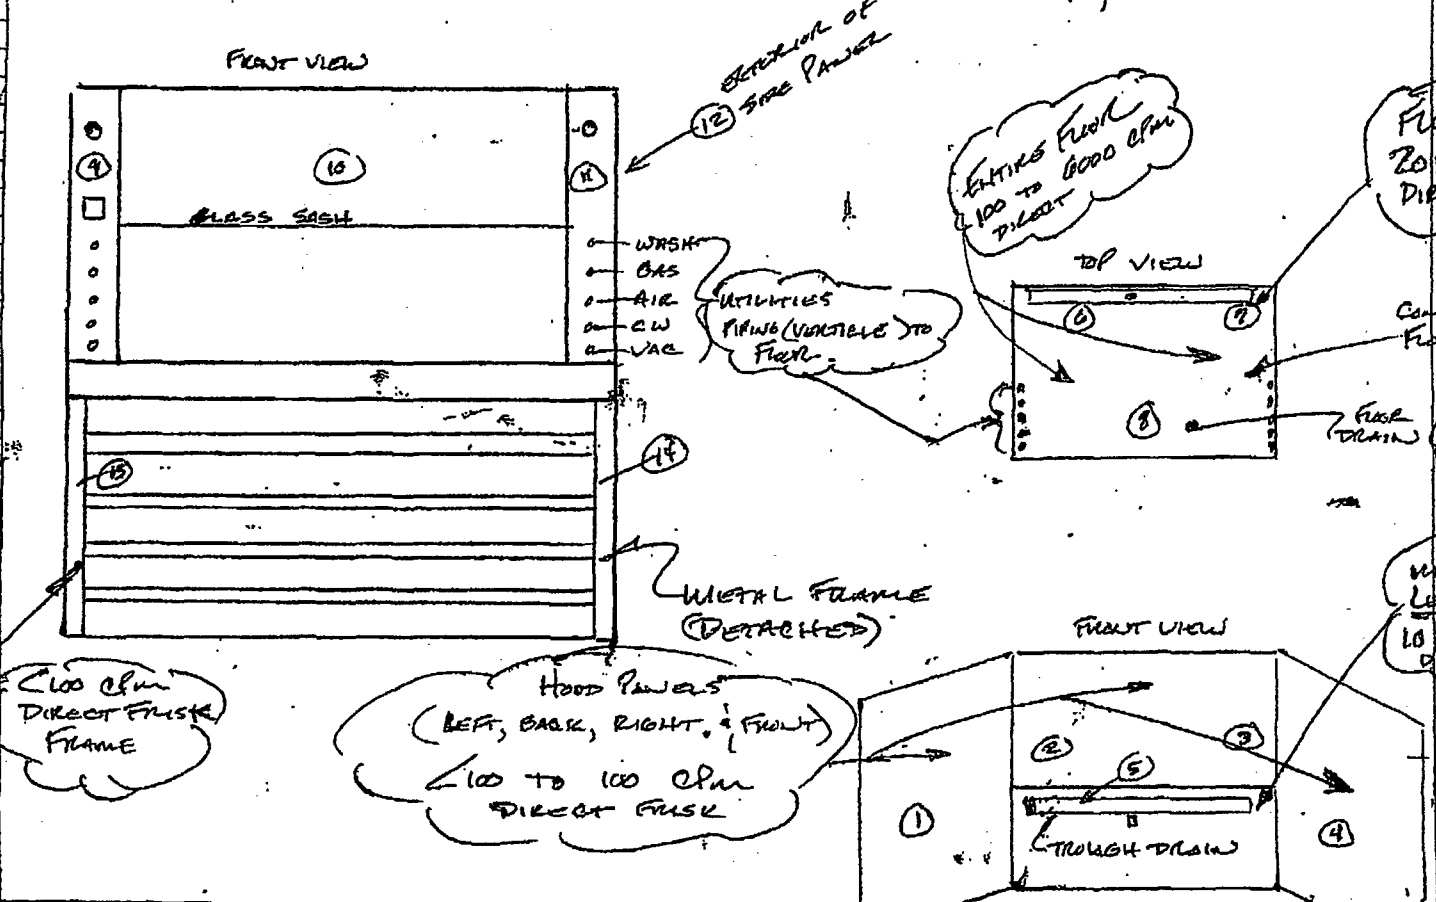 FRONT VIEW
EXTERIOR OF
12 SIDE PANEL
9
10
11
GLASS SASH
WASH
GAS
AIR
CW
VAC
UTILITIES
PIPING (VERTICLE) TO
FLOOR
ENTIRE FLOOR
100 TO 6000 CPM
DIRECT
FL
20
DIR
TOP VIEW
6
7
8
FLOOR
DRAIN
FLO
15
14
METAL FRAME
(DETACHED)
<100 CPM
DIRECT FRISK
FRAME
HOOD PANELS
(LEFT, BACK, RIGHT, & FRONT)
<100 TO 100 CPM
DIRECT FRISK
FRONT VIEW
10
D
2
3
5
1
4
TROUGH DRAIN